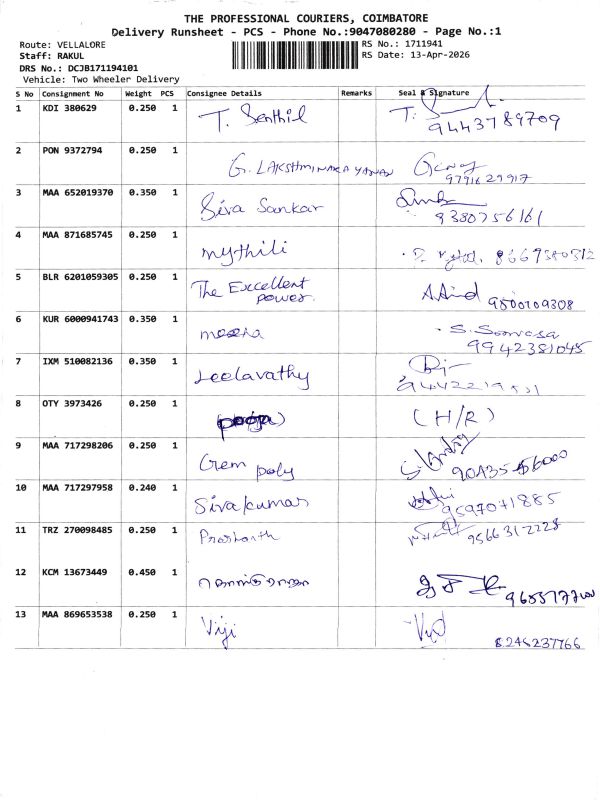 THE PROFESSIONAL COURIERS, COIMBATORE
Delivery Runsheet - PCS - Phone No.:9047080280 - Page No.:1
Route: VELLALORE RS No.: 1711941
Staff: RAKUL RS Date: 13-Apr-2026
DRS No.: DCJB171194101
Vehicle: Two Wheeler Delivery
S No Consignment No Weight PCS Consignee Details Remarks Seal & Signature
1 KDI 380629 0.250 1 T. Senthil T.
9443789709
2 PON 9372794 0.250 1 G. LAKSHMINARAYANAN
9791629917
3 MAA 652019370 0.350 1 Siva Sankar
9380756161
4 MAA 871685745 0.250 1 mythili
5 BLR 6201059305 0.250 1 The Excellent
power. 9500109308
6 KUR 6000941743 0.350 1 meera
9942381045
7 IXM 510082136 0.350 1 Leelavathy
8 OTY 3973426 0.250 1 (pooja) (H/R)
9 MAA 717298206 0.250 1 Gem poly
10 MAA 717297958 0.240 1 Sivakumar
9597071885
11 TRZ 270098485 0.250 1 Prashanth 9566312228
12 KCM 13673449 0.450 1
13 MAA 869653538 0.250 1 Viji
8246237766